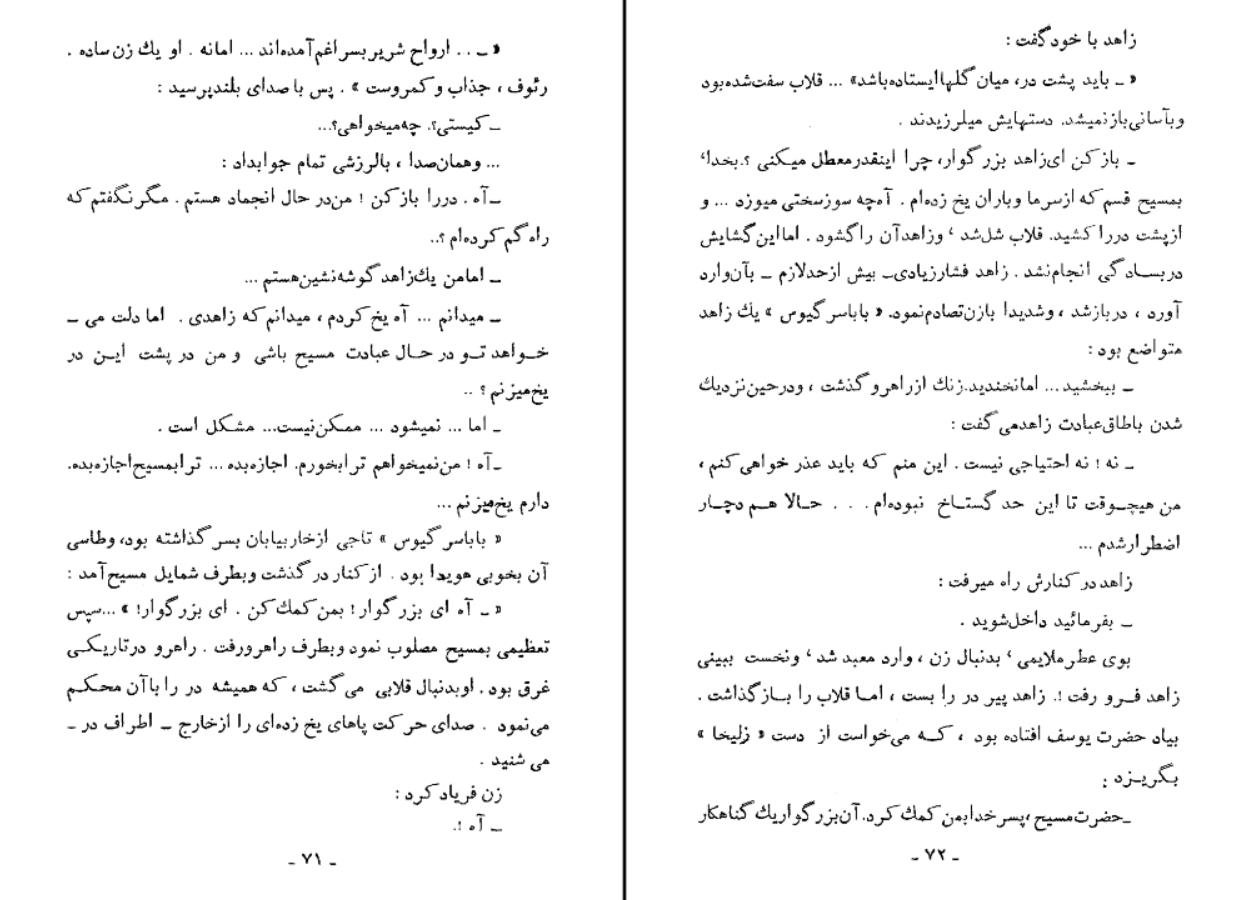 « ـ . . ارواح شریر بسراغم آمده‌اند ... امانه . او یك زن ساده .
رئوف ، جذاب و کمروست » . پس با صدای بلندپرسید :
ـ کیستی؟. چه‌میخواهی؟...
... وهمان‌صدا ، بالرزشی تمام جوابداد :
ـ آه . دررا بازکن ! من‌در حال انجماد هستم . مگر نگفتم که
راه گم کرده‌ام ؟..
ـ امامن یك‌زاهد گوشه‌نشین‌هستم ...
ـ میدانم ... آه یخ‌کردم ، میدانم‌که زاهدی . اما دلت می ـ
خـواهد تـو در حـال عبادت مسیح باشی و من در پشت ایـن در
یخ‌میزنم ؟ ..
ـ اما ... نمیشود ... ممکن‌نیست... مشکل است .
ـ آه ! من‌نمیخواهم ترابخورم. اجازه‌بده ... ترابمسیح‌اجازه‌بده.
دارم یخ‌میزنم ...
« باباسرگیوس » تاجی ازخاربیابان بسر گذاشته بود، وطاسی
آن بخوبی هویدا بود . ازکنار درگذشت وبطرف شمایل مسیح‌آمد :
« ـ آه ای بزرگوار! بمن‌کمك‌کن . ای بزرگوار! » ...سپس
تعظیمی بمسیح مصلوب نمود وبطرف راهرورفت . راهرو درتاریـکـی
غرق بود . اوبدنبال قلابی می‌گشت ، که همیشه در را باآن محکـم
می‌نمود . صدای حرکت پاهای یخ زده‌ای را ازخارج ـ اطراف در ـ
می شنید .
زن فریادکرد :
ـ آه !.
ـ ۷۱ ـ
زاهد با خودگفت :
« ـ باید پشت در، میان گلهاایستاده‌باشد» ... قلاب سفت‌شده‌بود
وبآسانی‌بازنمیشد. دستهایش میلرزیدند .
ـ بازکن ای‌زاهد بزرگوار، چرا اینقدرمعطل میکنی ؟.بخدا،
بمسیح قسم که ازسرما وباران یخ زده‌ام . آه‌چه سوزسختی میوزد ... و
ازپشت دررا کشید. قلاب شل‌شد ، وزاهدآن راگشود . امااین‌گشایش
دربسـادگی انجام‌نشد . زاهد فشارزیادی‌ـ بیش ازحدلازم ـ بآن‌وارد
آورد ، دربازشد ، وشدیدا بازن‌تصادم‌نمود. « باباسرگیوس » یك زاهد
متواضع بود :
ـ ببخشید... امانخندید.زنك ازراهرو گذشت ، ودرحین‌نزدیك
شدن باطاق‌عبادت زاهدمی‌گفت :
ـ نه ! نه احتیاجی نیست . این منم که باید عذر خواهی‌کنم ،
من هیچـوقت تا این حد گستـاخ نبوده‌ام . . . حـالا هـم دچـار
اضطرارشدم ...
زاهد درکنارش راه میرفت :
ـ بفرمائید داخل‌شوید .
بوی عطرملایمی ، بدنبال زن ، وارد معبد شد ، ونخست ببینی
زاهد فـرو رفت !. زاهد پیر در را بست ، امـا قلاب را بـازگذاشت .
بیاد حضرت یوسف افتاده بود ، کـه می‌خواست از دست « زلیخا »
بگریـزد :
ـحضرت‌مسیح ،پسرخدابمن کمك کرد. آن‌بزرگواریك گناهکار
ـ ۷۲ ـ